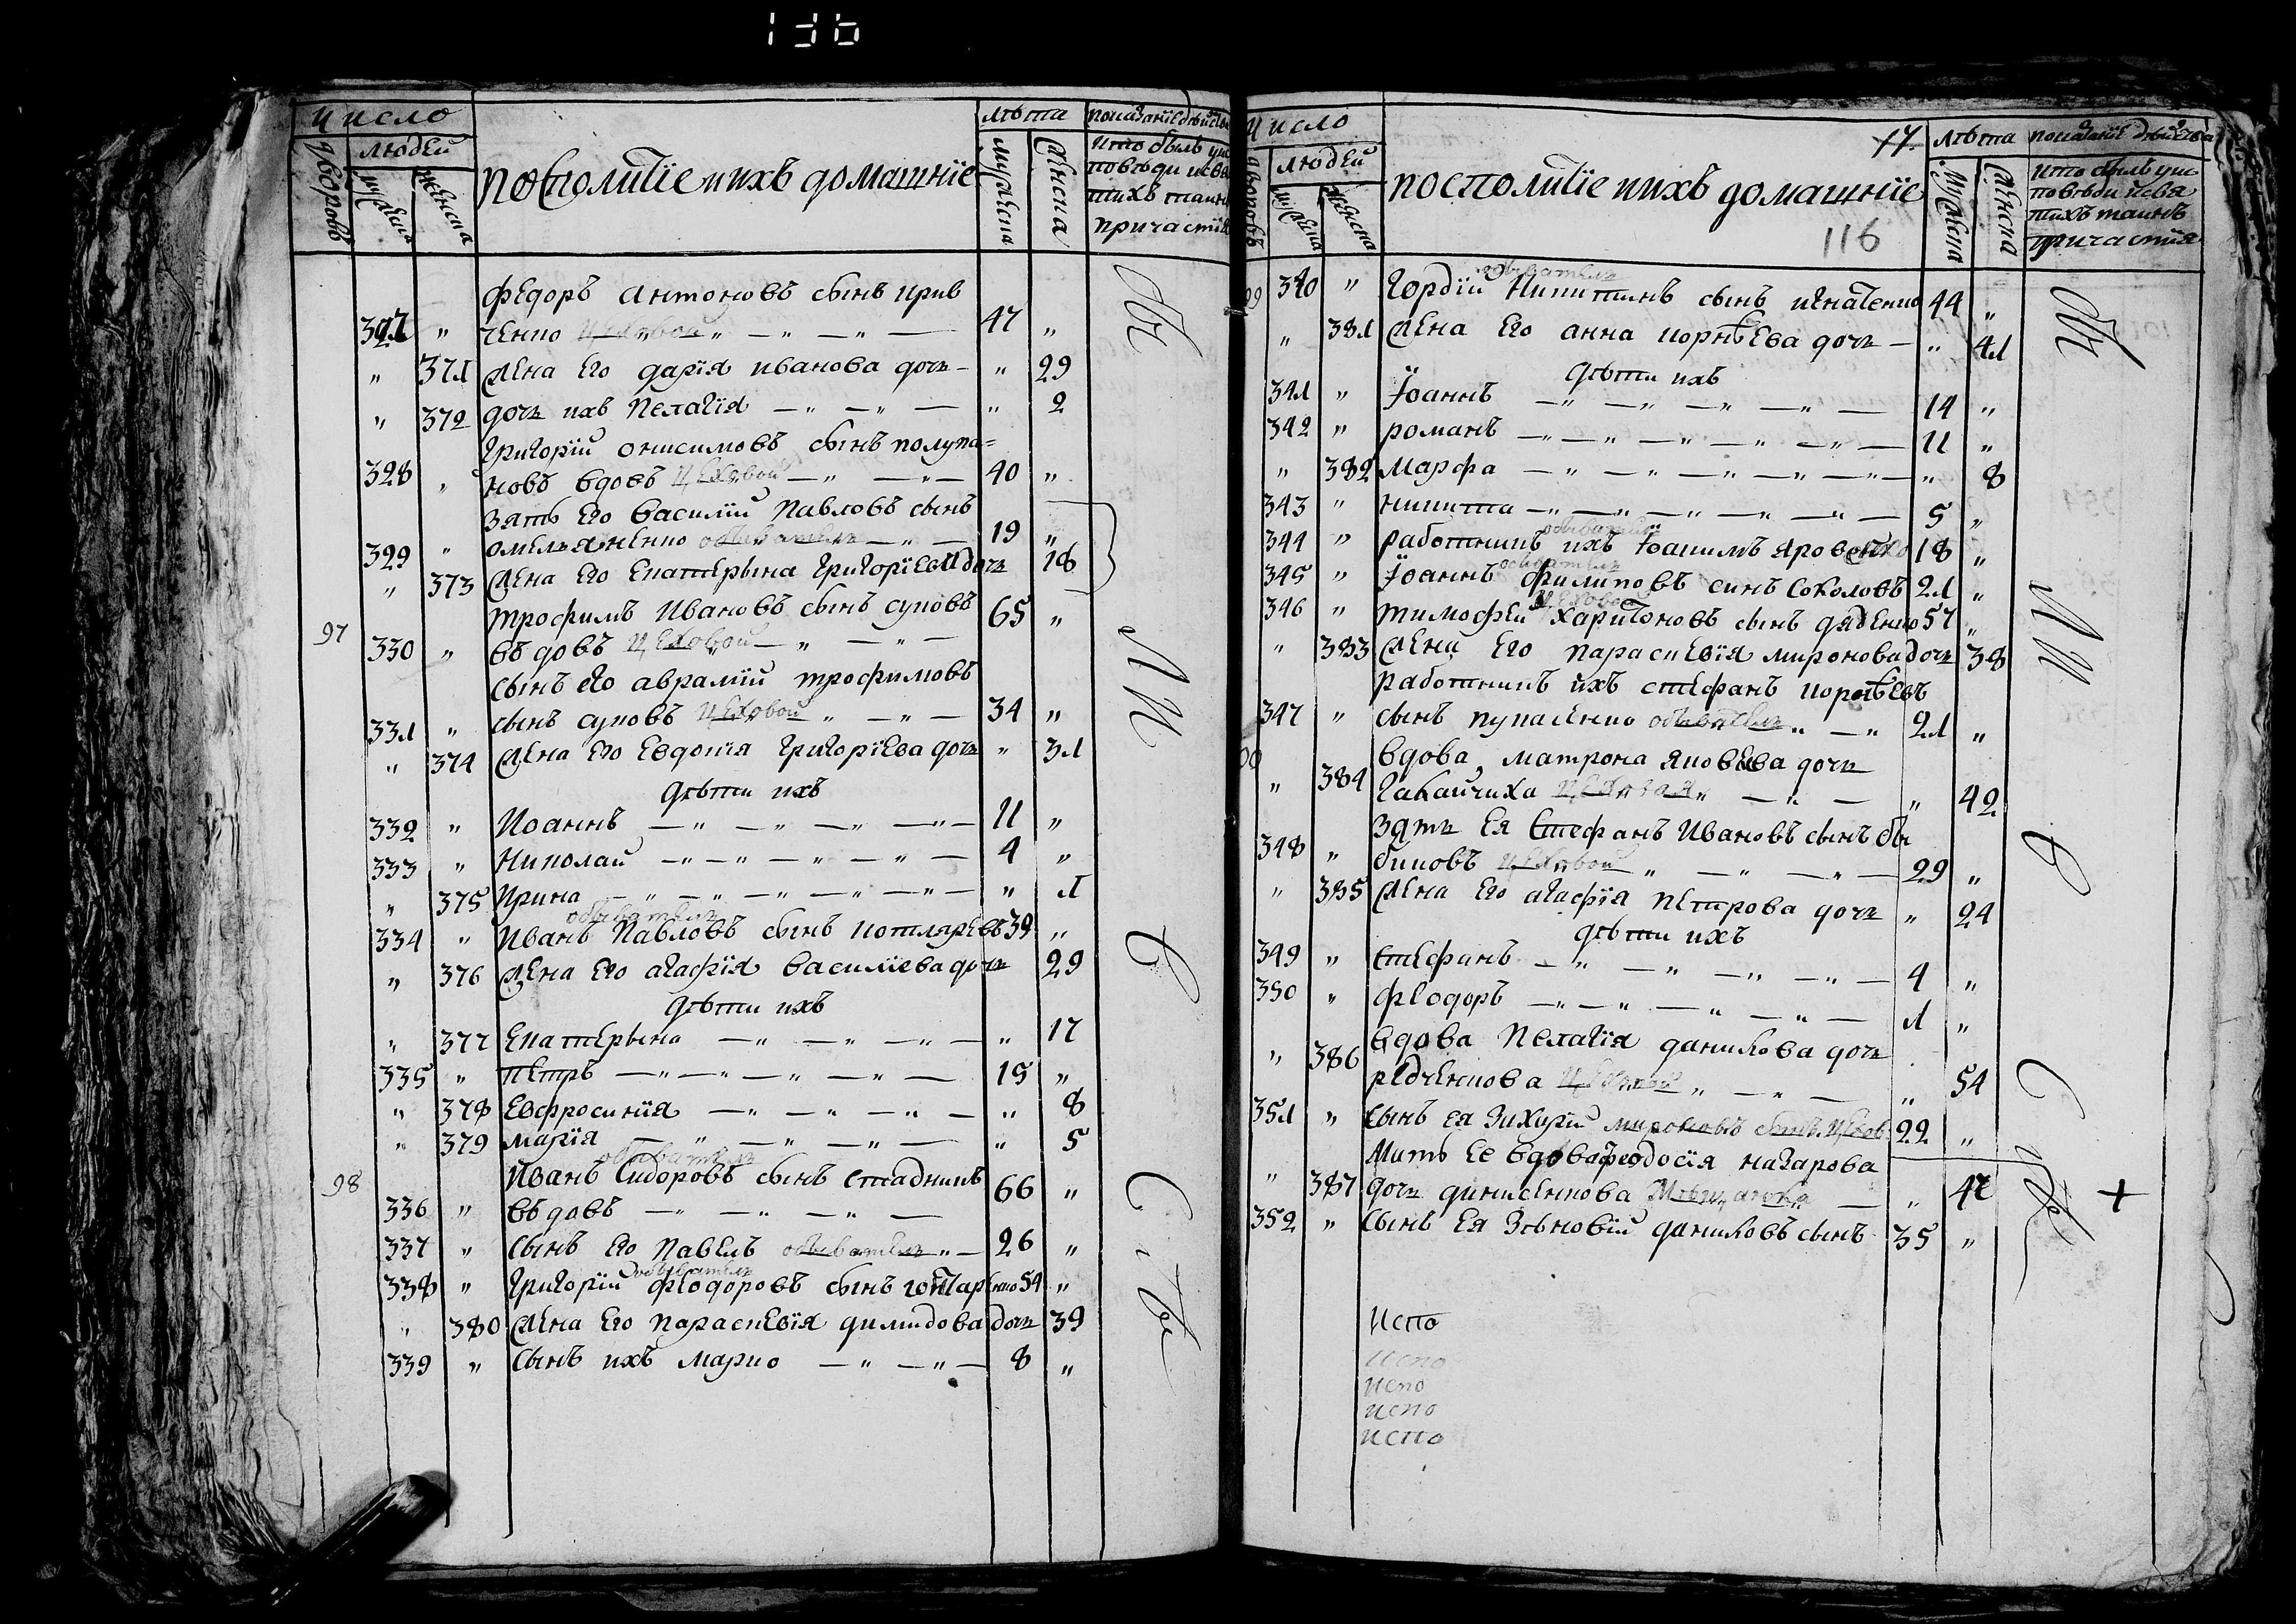 136
Число
людей
дворовъ
мужеска
женска
посполитіе и ихъ домашніе
лѣта
мужеска
женска
показаніе дѣйства
кто былъ у ис
повѣди и свя
тихъ таинъ
причастія
Федоръ Антоновъ сынъ крив
327 „ ченко цеховой 47 „
„ 371 жена его Дарія Иванова дочь 29
„ 372 дочь ихъ Пелагія „ 2
Григорій Онисимовъ сынъ полупа=
328 „ новъ вдовъ цеховой 40 „
зять его Василій Павловъ сынъ
329 „ омельяненко обыватель 19 „
„ 373 жена его Екатерына Григоріева дочь 18
97 Трофимъ Ивановъ сынъ суковъ 65 „
330 „ въдовъ цеховой
сынъ его Аврамій Трофимовъ
331 „ сынъ суковъ цеховой 34 „
„ 374 жена его Евдокія Григоріева дочь „ 31
дѣти ихъ
332 „ Иоаннъ 11 „
333 „ Николай 4 „
„ 375 Ирина „ 1
обыватель
334 „ Иванъ Павловъ сынъ котляревъ 39 „
„ 376 жена его Агафія Василіева дочь 29
дѣти ихъ
„ 377 Екатерына „ 17
335 „ Петръ 15 „
„ 378 Евфросинія „ 8
„ 379 Марія „ 5
обыватель
98 Иванъ Сидоровъ сынъ Стадникъ 66 „
336 „ въдовъ
337 „ Сынъ его Павелъ обыватель 26 „
обыватель
338 „ Григорій Феодоровъ сынъ гонтаренко 54 „
„ 380 жена его Параскевія Дамидова дочь 39
339 „ Сынъ ихъ Марко 8 „
Бы
ли
в
с
и
Число
людей
дворовъ
мужеска
женска
посполитіе и ихъ домашніе
17.
116
лѣта
мужеска
женска
показаніе дѣйства
кто былъ у ис
повѣди и свя
тихъ таинъ
причастія
обыватель
99 340 „ Гордій Никитинъ сынъ игнатенко 44 „
„ 381 жена его Анна Корнѣева дочь „ 41
дѣти ихъ
341 „ Іоаннъ 14 „
342 „ Романъ 11 „
„ 382 Марфа „ 8
343 „ Никита 5 „
обыватель
344 „ работникъ ихъ Іоакимъ Яровенко 18 „
обыватель
345 „ Іоаннъ Филиповъ синъ Соколовъ 21 „
цеховой
346 „ Тимофей Харитоновъ сынъ дяденко 57 „
„ 383 жена его Параскевія Миронова дочь 38
работникъ ихъ Стефанъ Корнѣевъ
347 „ сынъ пупаженко обыватель 21 „
вдова Матрона Яковлева дочь
„ 384 Гакайчиха цеховая „ 42
зять ея Стефанъ Ивановъ сынъ бы
348 „ биковъ цеховой 29 „
„ 385 жена его Агафія Петрова дочь „ 24
дѣти ихъ
349 „ Стефанъ 4 „
350 „ Феодоръ 1 „
„ 386 вдова Пелагія Данилова дочь
редченкова „ 54
351 „ Сынъ ея Захарій мироновъ сынъ 22 „
Мать ее вдова Феодосія Назарова
„ 387 дочь денисенкова „ 47
352 „ Сынъ ея Зѣновій Даниловъ сынъ 35 „
Бы
ли
в
с
и
+
испо
испо
испо
испо
испо